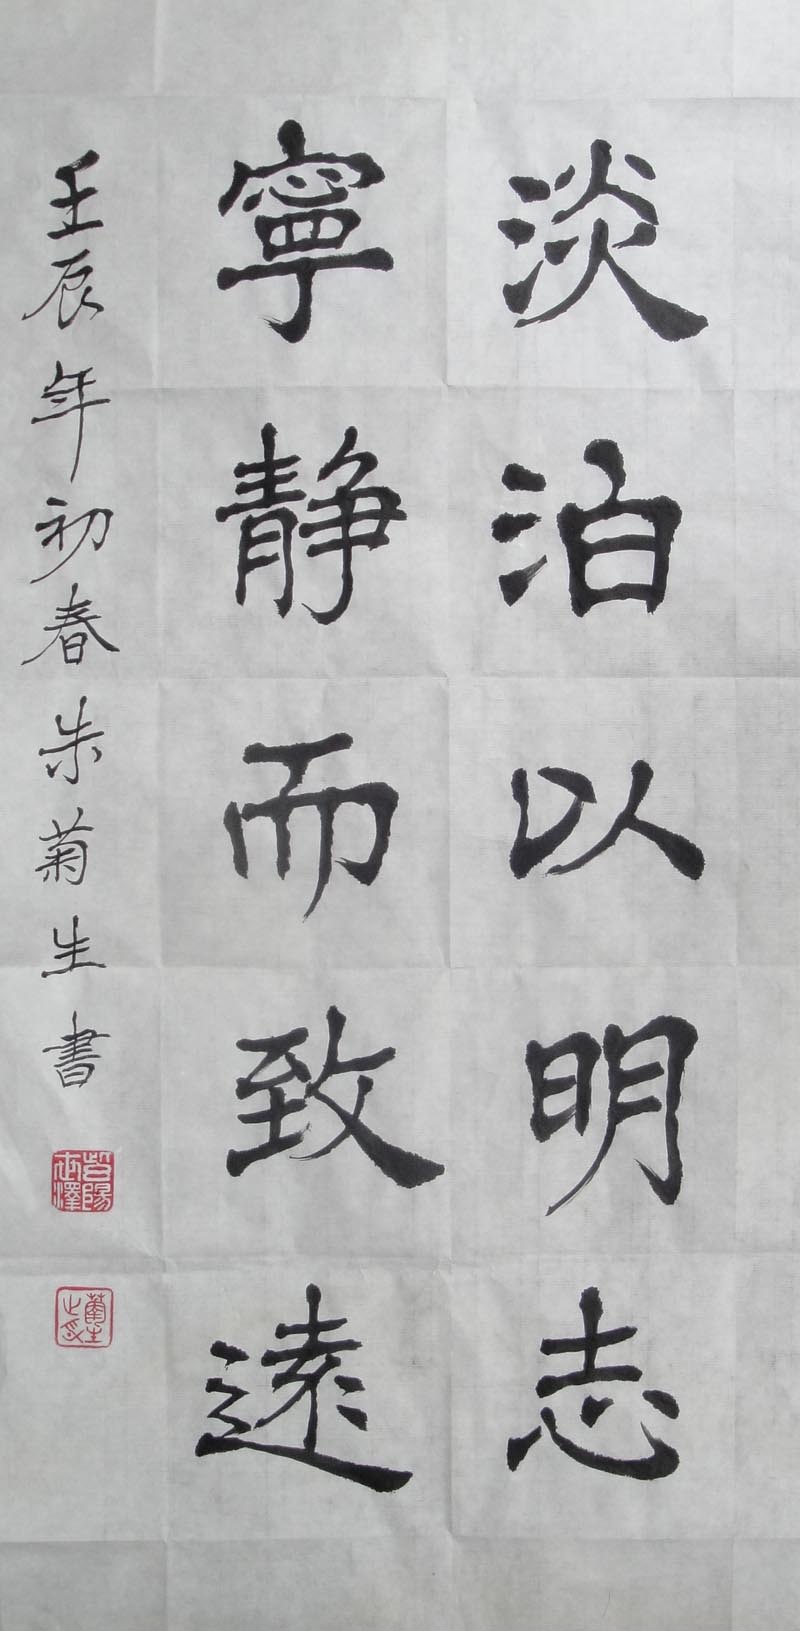 淡泊以明志
寧静而致遠
壬辰年初春朱菊生書
菊生之印